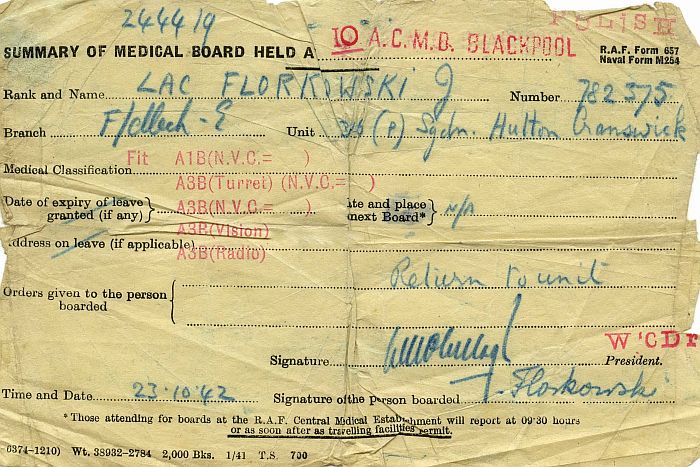 244419
POLISH
SUMMARY OF MEDICAL BOARD HELD A 10 A.C.M.B. BLACKPOOL
R.A.F. Form 657
Naval Form M254
Rank and Name LAC FLORKOWSKI J Number 782575
Branch F/Mech-E Unit (P) Sqdn. Hutton Cranswick
Fit A1B(N.V.C.= )
Medical Classification
A3B(Turret) (N.V.C.= )
Date of expiry of leave granted (if any) } A3B(N.V.C.= ) ate and place next Board* } N/A
A3B(Vision)
ddress on leave (if applicable)
A3B(Radio)
Return to unit
Orders given to the person boarded
W'CDr
Signature President.
Time and Date 23.10.42 Signature of the person boarded J. Florkowski
*Those attending for boards at the R.A.F. Central Medical Establishment will report at 09·30 hours
or as soon after as travelling facilities permit.
(6374-1210) Wt. 38932-2784 2,000 Bks. 1/41 T.S. 700